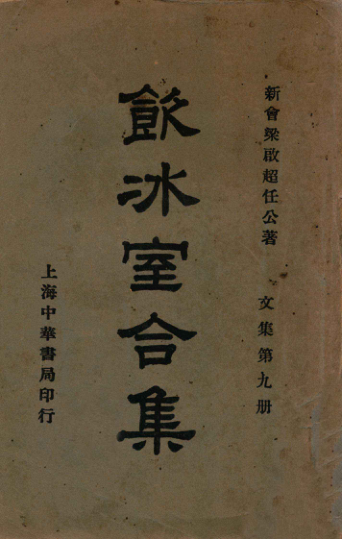 新會梁啟超任公著
文集第九册
飲冰室合集
上海中華書局印行